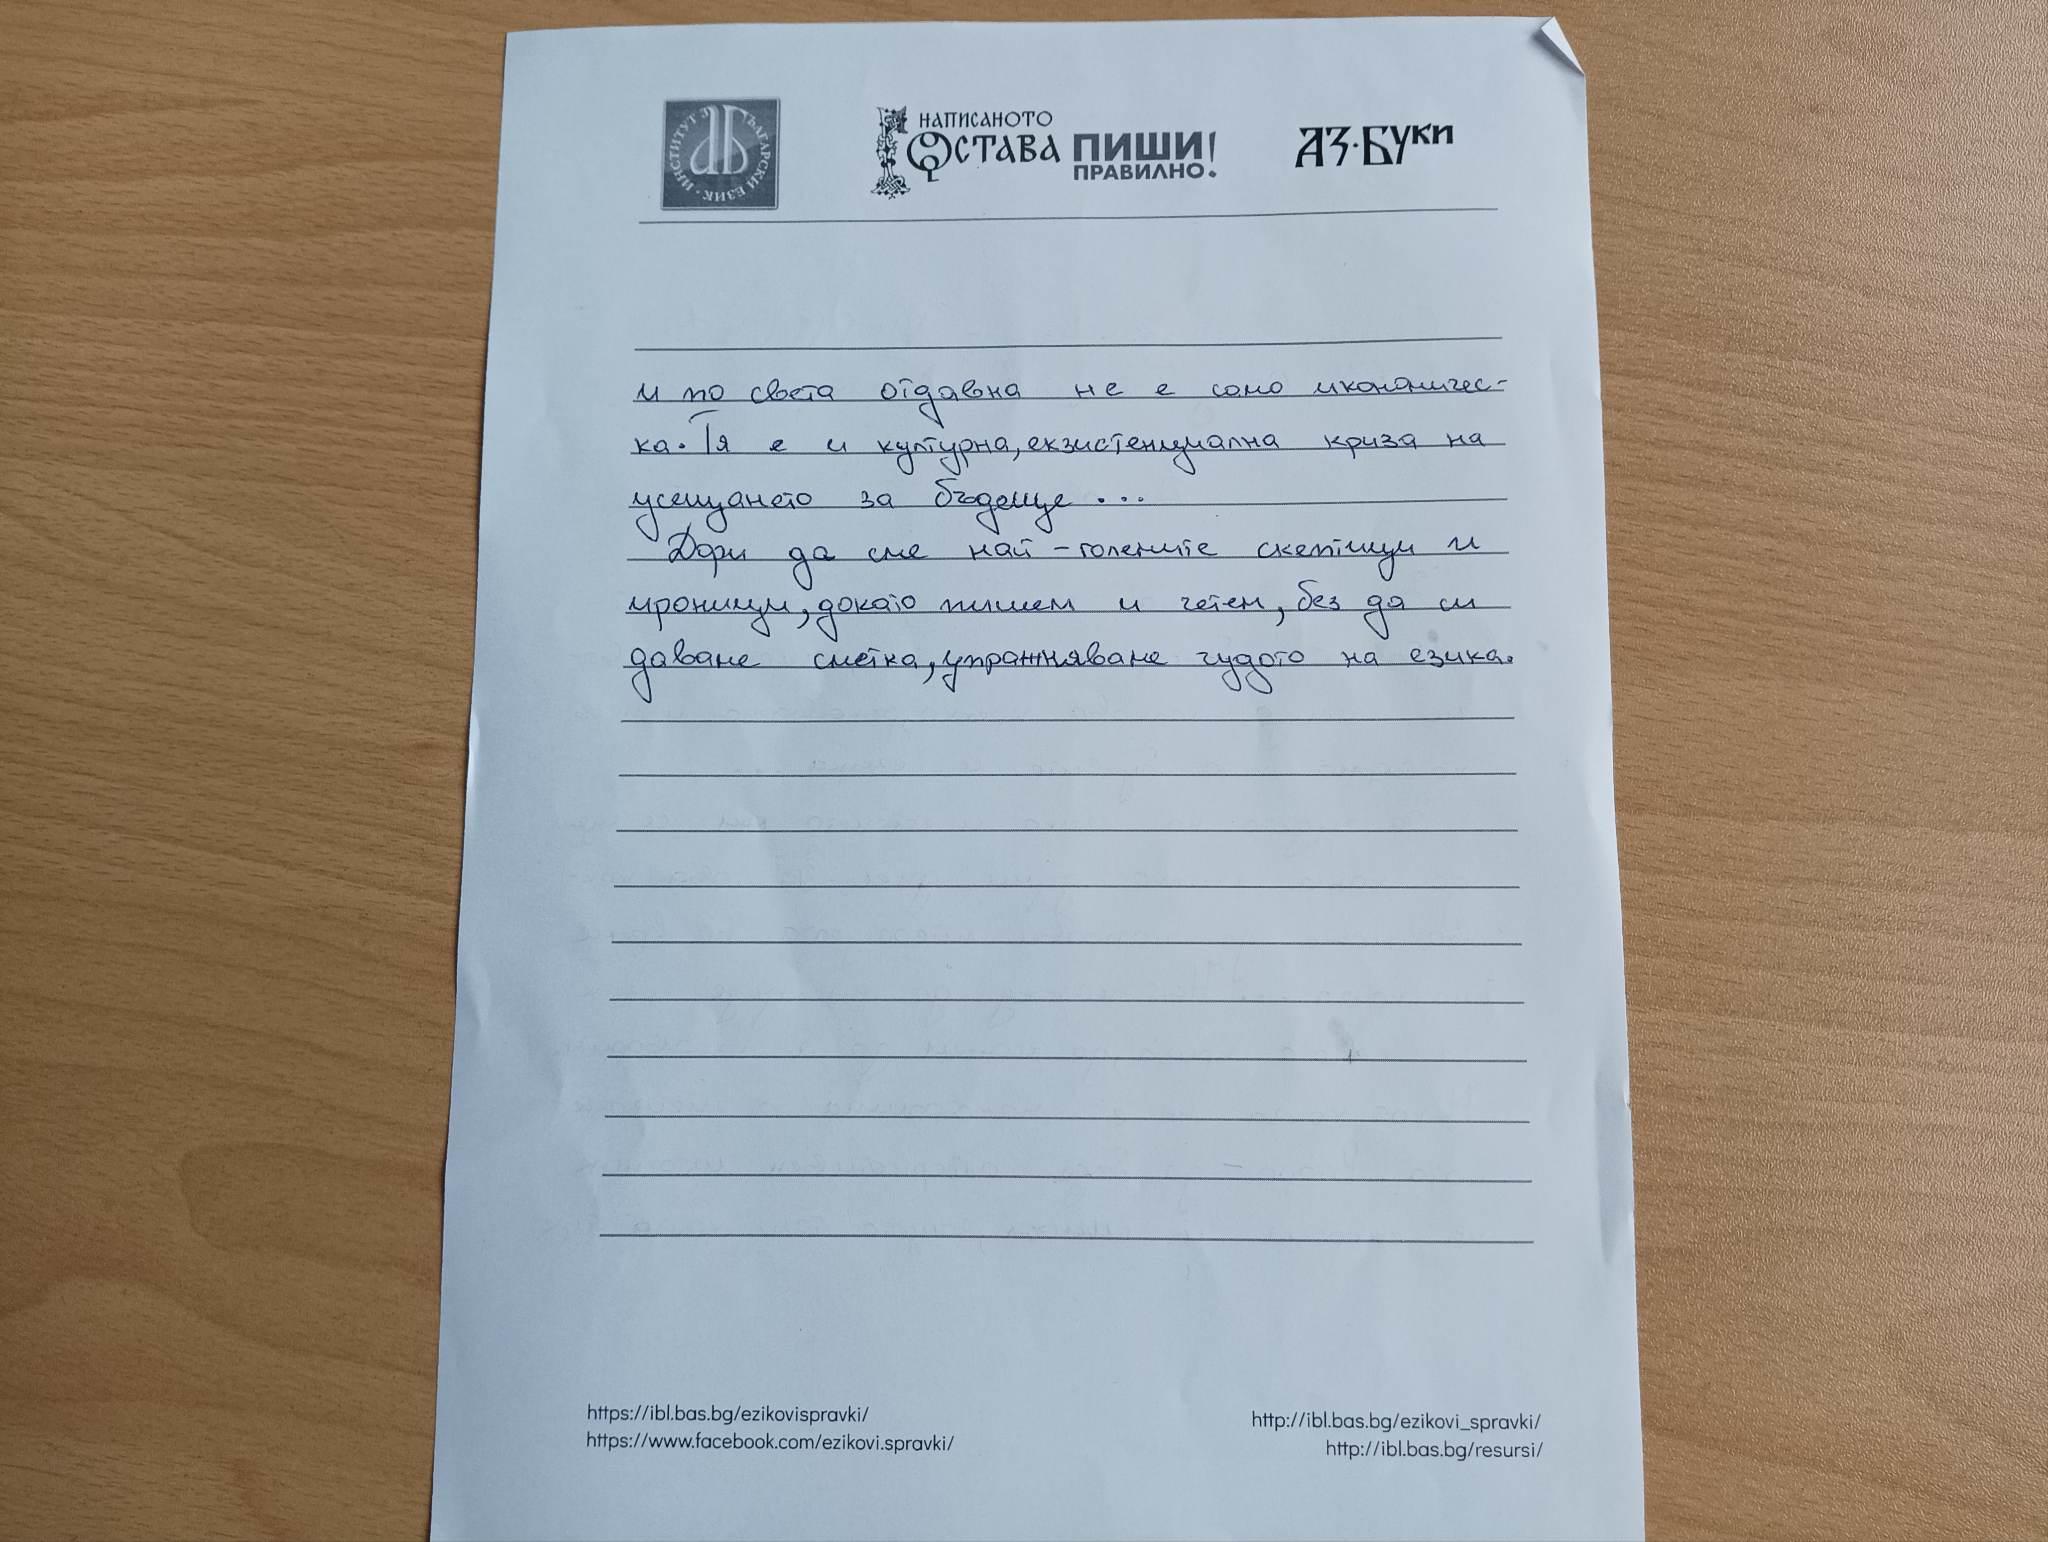 ИНСТИТУТ ЗА БЪЛГАРСКИ ЕЗИК
НАПИСАНОТО
ОСТАВА ПИШИ
ПРАВИЛНО!
АЗ·БУКИ
и по света отдавна не е само икономичес-
ка. Тя е и културна, екзистенциална криза на
усещането за бъдеще...
Дори да сме най-големите скептици и
ироници, докато пишем и четем, без да си
даваме сметка, упражняваме чудото на езика.
https://ibl.bas.bg/ezikovispravki/
https://www.facebook.com/ezikovi.spravki/
http://ibl.bas.bg/ezikovi_spravki/
http://ibl.bas.bg/resursi/